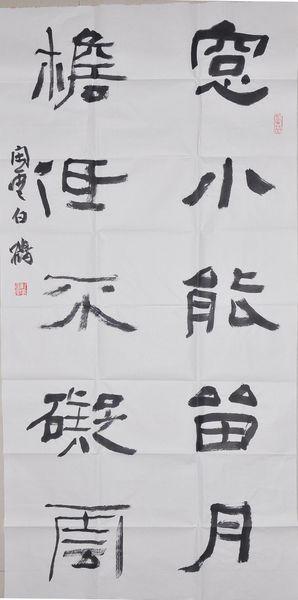 窓小能留月
檐低不礙雲
白鶴